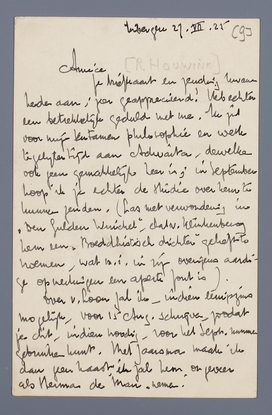 Nibergen 27. VII. 25
(9)
Amice
Je briefkaart en zending kwamen
heden aan; zeer geapprecieerd! Heb echter
een betrekkelijk geduld met me. Ik zit
voor mijn tentamen philosophie en werk
tegelijkertijd aan Adwaita, dewelke
ook geen gemakkelijk heer is; in September
hoop ik je echter de studie over hem te
kunnen zenden. (Las met verwondering in
"Den Gulden Winckel" dat v. Klinkenberg
hem een Boeddhistisch dichter geliefde te
noemen, wat i. in zijn overigens aardige
opmerkingen een aperte fout is)
Over v. Loon zal ik, indien eenigszins
mogelijk, voor 15 Aug. schrijven, zoodat
je dit, indien noodig, voor het Sept. nummer
gebruiken kunt. Met Jaarsma maak ik
dan geen haast; ik zal hem er geven
als Herman de Man nemen.